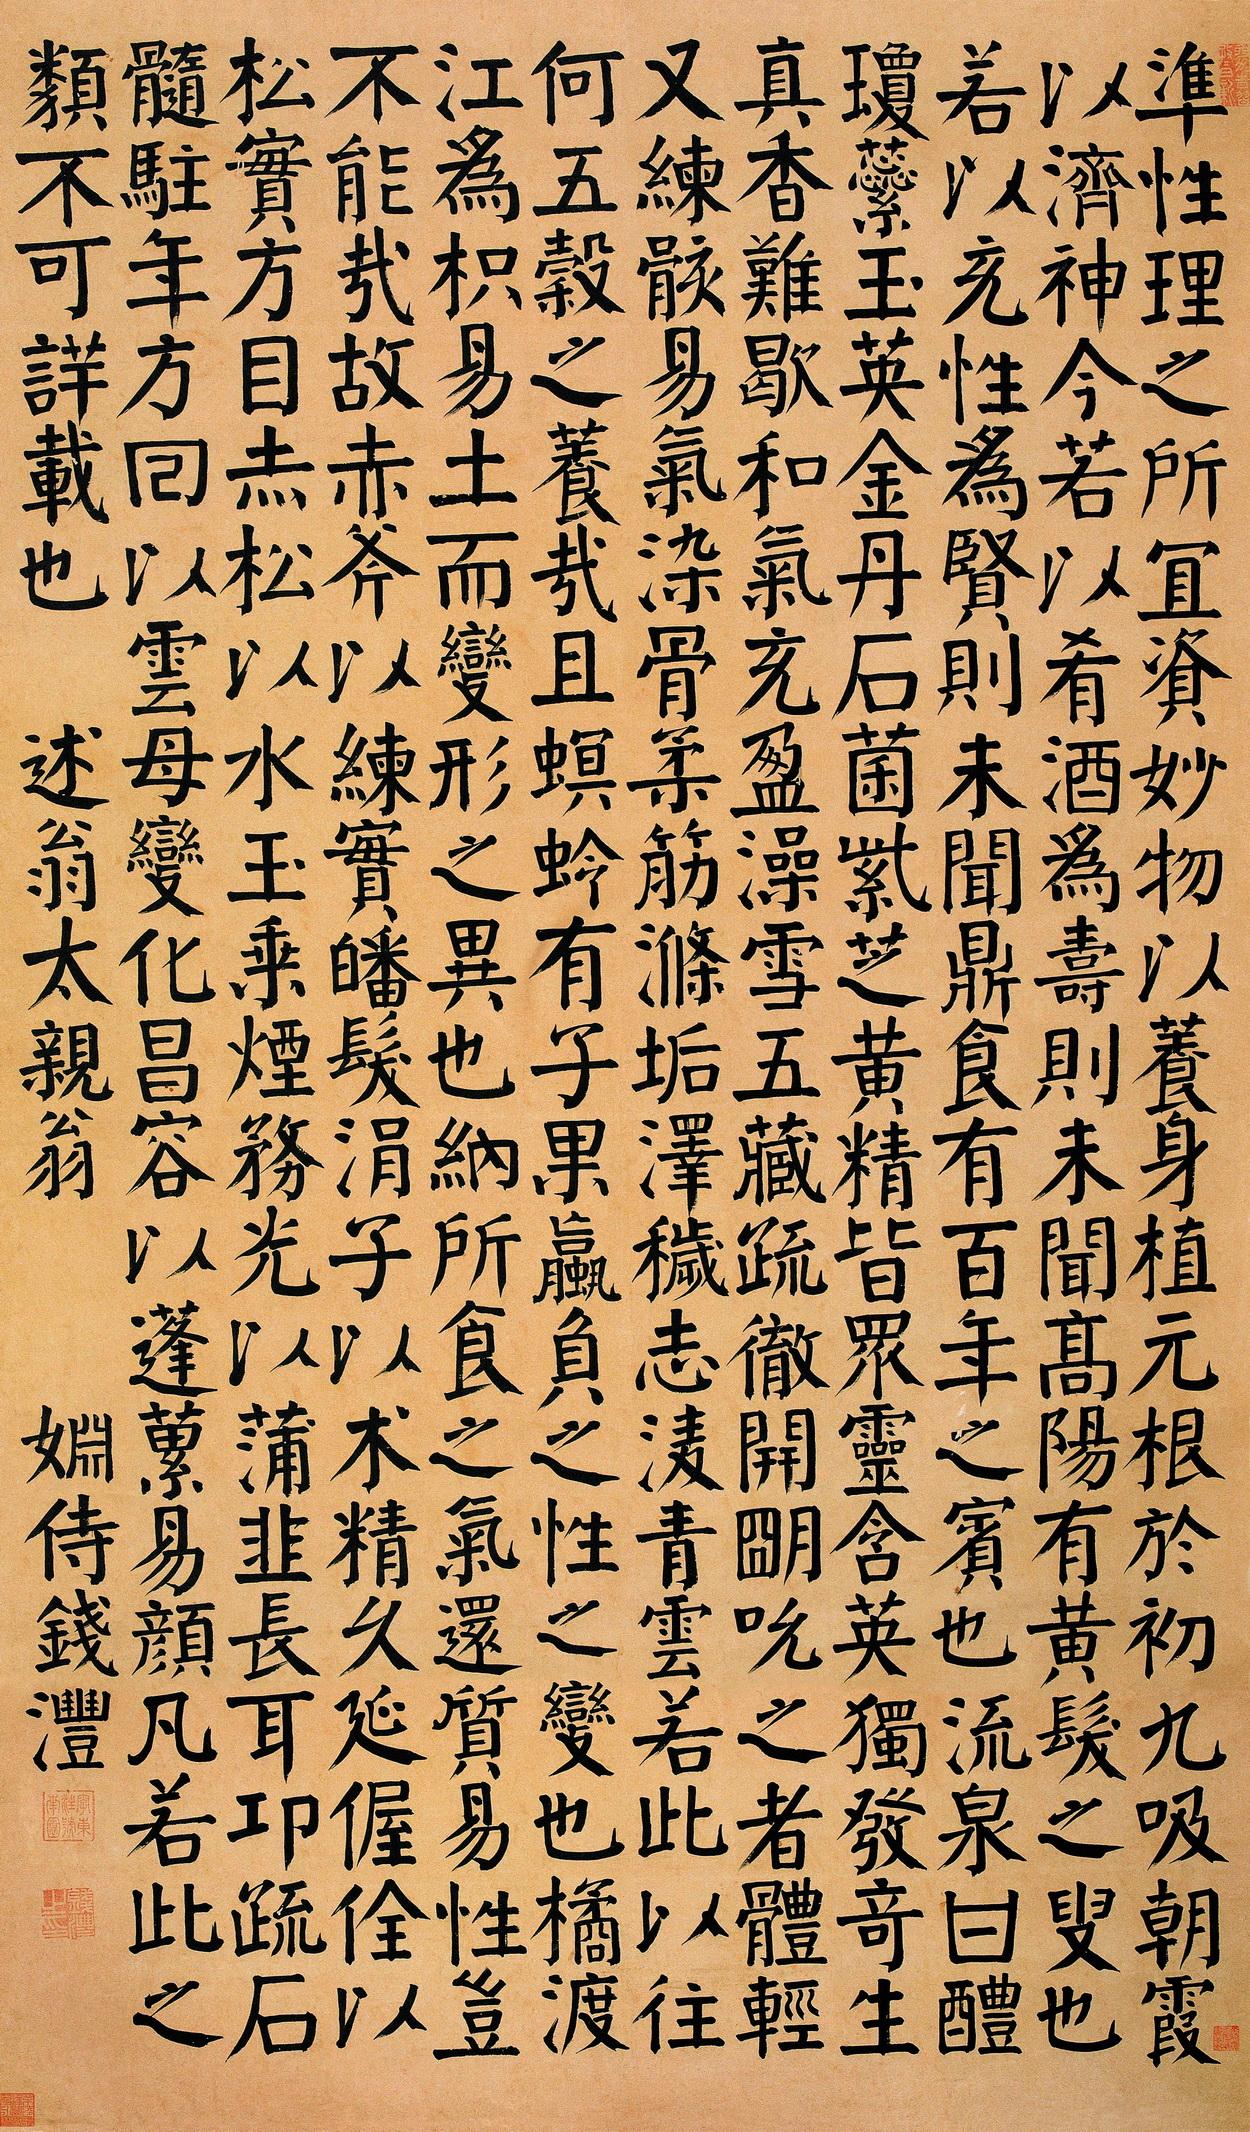 準性理之所冝資妙物以養身植元根於初九吸朝霞
以濟神今若以肴酒為壽則未聞髙陽有黄髮之叟也
若以充性為賢則未聞鼎食有百年之賓也流泉曰醴
瓊蘂玉英金丹石菌紫芝黄精皆眾靈含英獨發竒生
真香難歇和氣充盈澡雪五藏疏徹開朙吮之者體輕
又練骸易氣染骨柔筋滌垢澤穢志淩青雲若此以往
何五穀之養哉且螟蛉有子果蠃負之性之變也橘渡
江為枳易土而變形之異也納所食之氣還質易性豈
不能哉故赤斧以練實皤髮涓子以术精久延偓佺以
松實方目赤松以水玉乗煙務光以蒲韭長耳卭疏石
髓駐年方回以雲母變化昌容以蓬蔂易顔凡若此之
類不可詳載也 述翁太親翁 姻侍錢灃